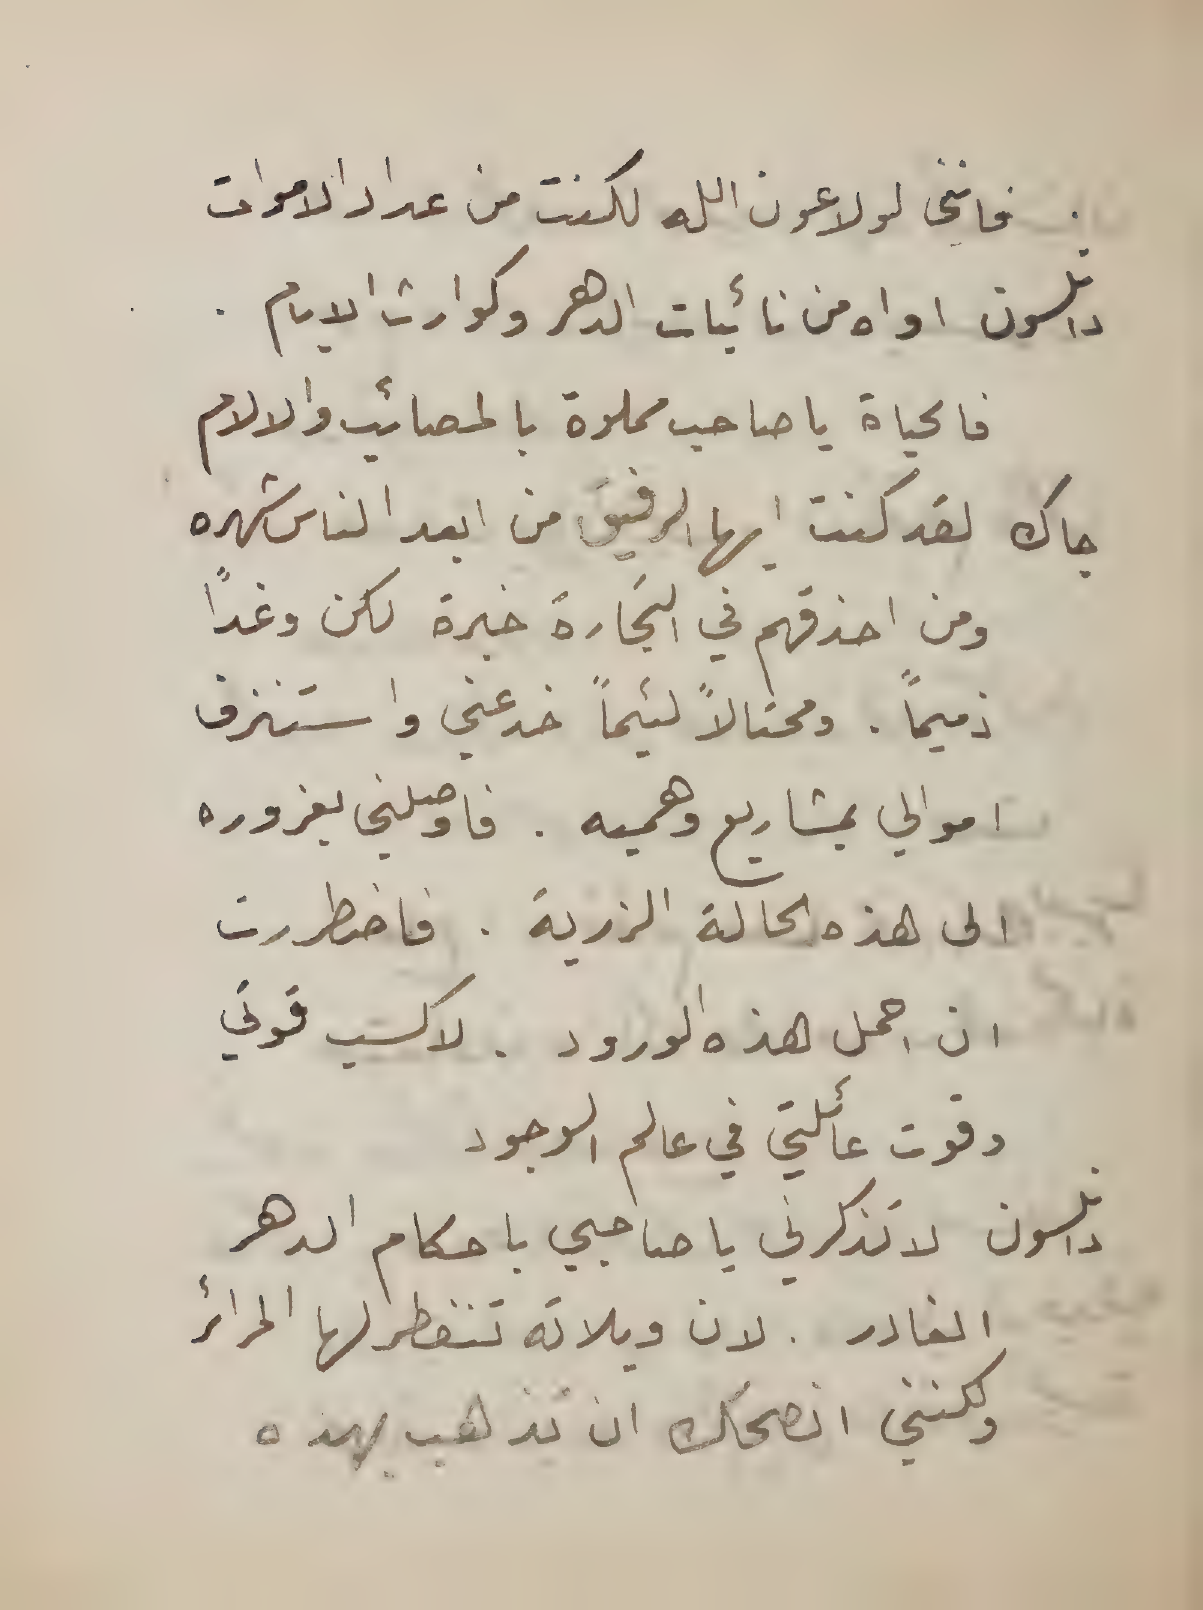 فانني لولا عون الله لكنت من عداد الاموات
دانلسون اواه من نائبات الدهر وكوارث الايام .
فالحياة يا صاحب مملوة بالمصائب والالام
جاك لقد كنت ايها الرفيق من ابعد الناس شهره
ومن احذقهم في التجارة خبرة لكن وغداً
ذميماً . ومحتالاً لئيماً خدعني واستنزف
اموالي بمشاريع وهميه . فاوصلني بغروره
الى هذه الحالة الزرية . فاضطررت
ان احمل هذه الورود . لاكسب قوتي
وقوت عائلتي في عالم الوجود
دانلسون لا تذكرني يا صاحبي باحكام الدهر
الغادر . لان ويلاته تنفطر لها المرائر
ولكنني انصحك ان تذهب بهذه